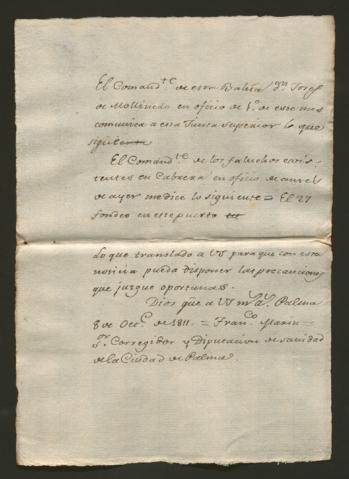 El Comand.te de esta Bahia d.n Josef
de Mollinedo en oficio de 1.o de este mes
comunica a esta Junta Superior lo que
sigue
El Comand.te de los faluchos exis-
tentes en Cabrera en oficio de
de ayer me dice lo siguiente = El 27
fondeo en este puerto
Lo que translado a VS para que con esta
noticia pueda disponer las precauciones
que juzgue oportunas.
Dios gũe a VS m.s a.s Palma
8 de Oct.e de 1811. = Fran.co Marin =
S.r Corregidor y Diputacion de sanidad
de la Ciudad de Palma